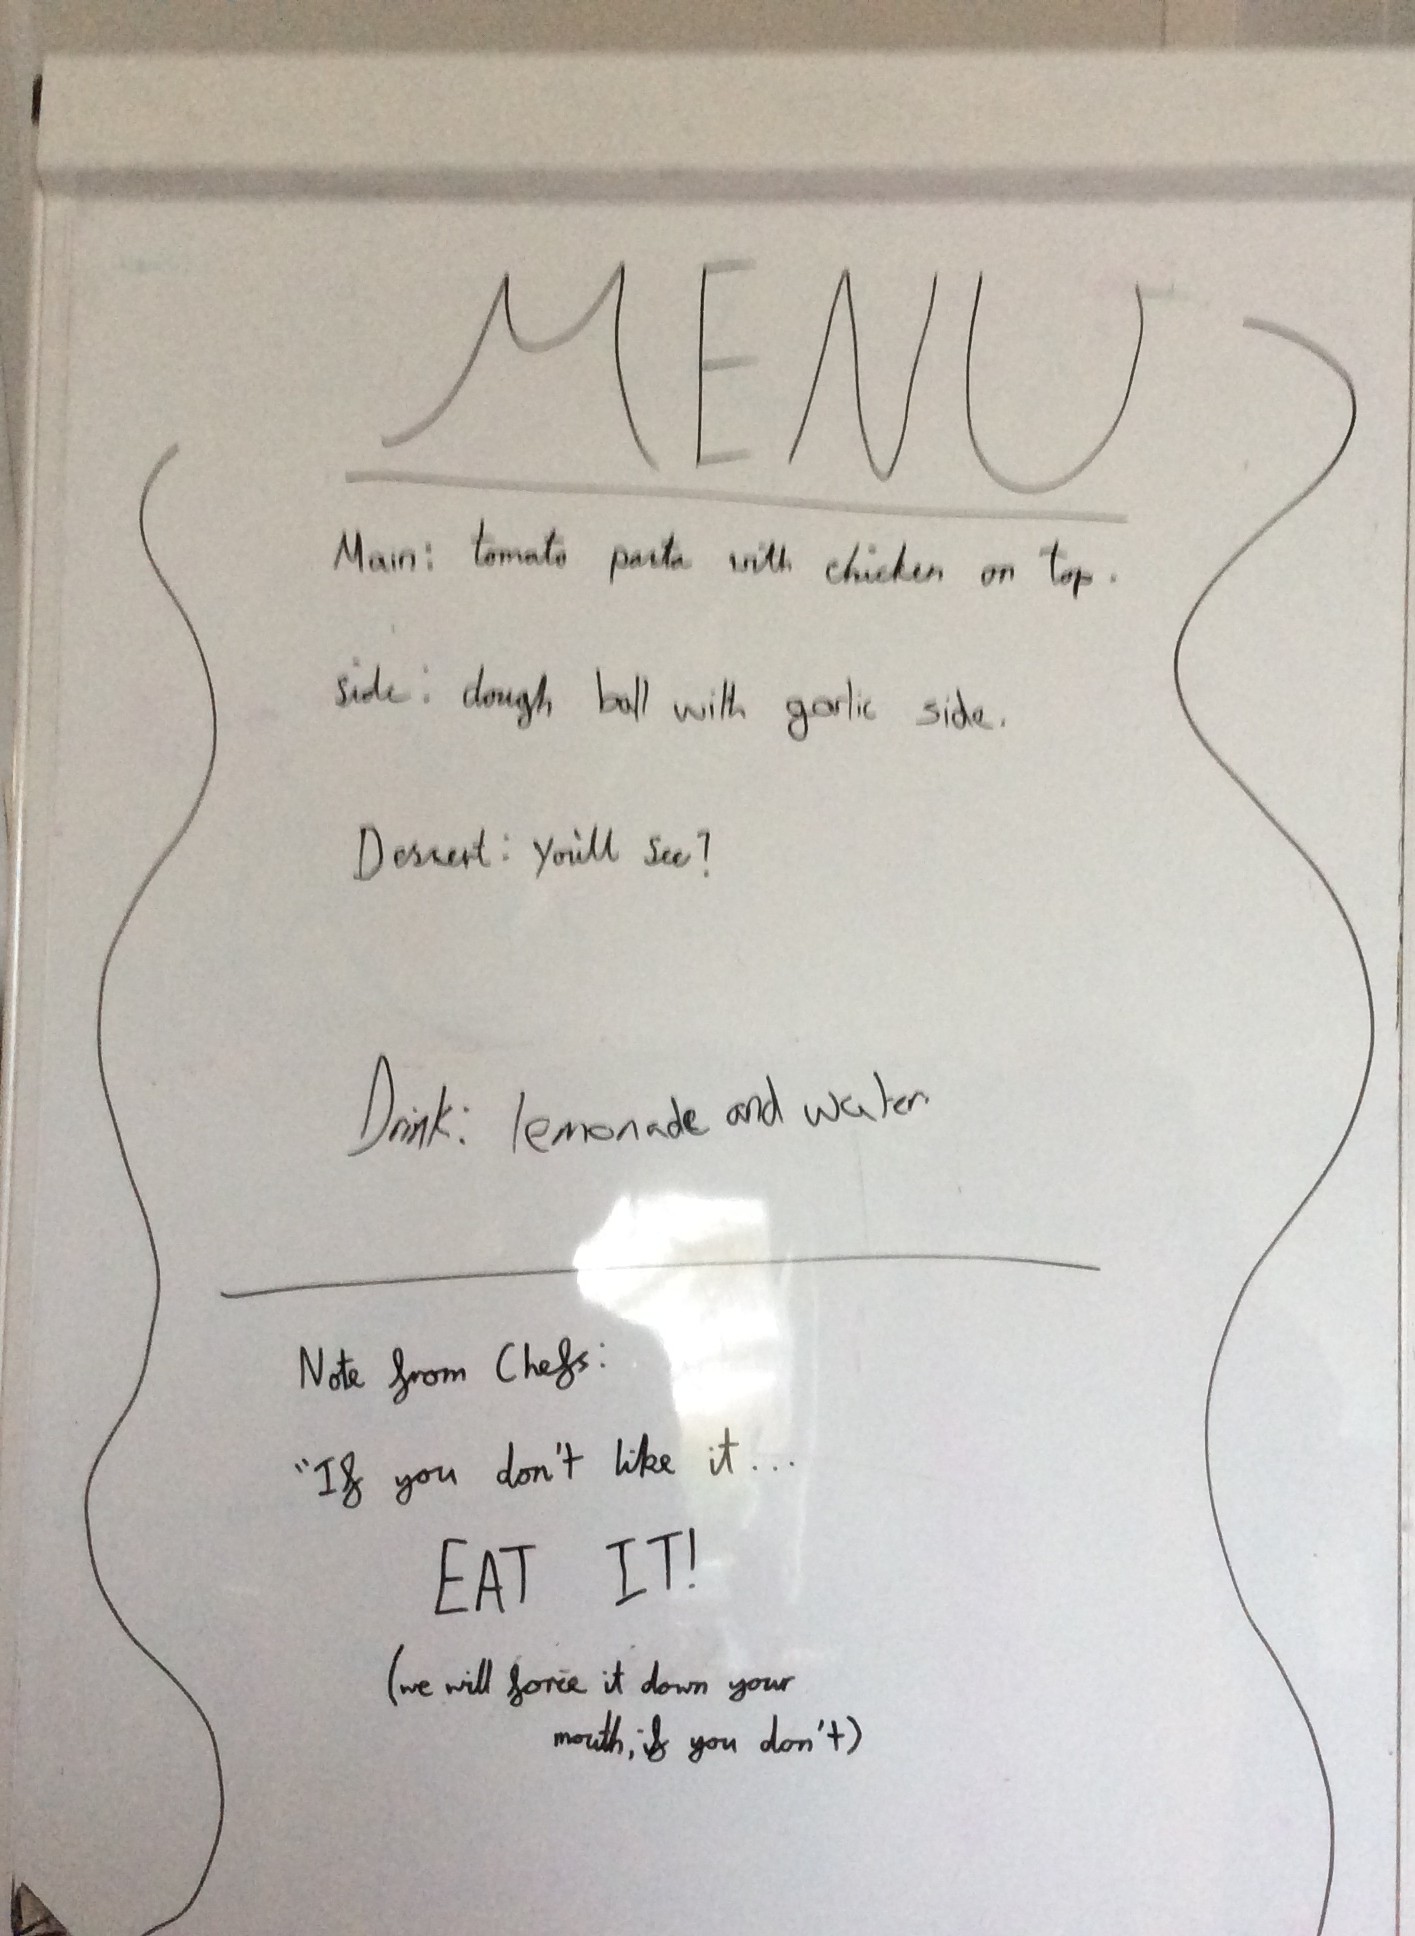 MENU
Main: tomato pasta with chicken on top.
side: dough ball with garlic side.
Dessert: You'll see?
Drink: lemonade and water
Note from Chefs:
"If you don't like it...
EAT IT!
(we will force it down your
mouth, if you don't)